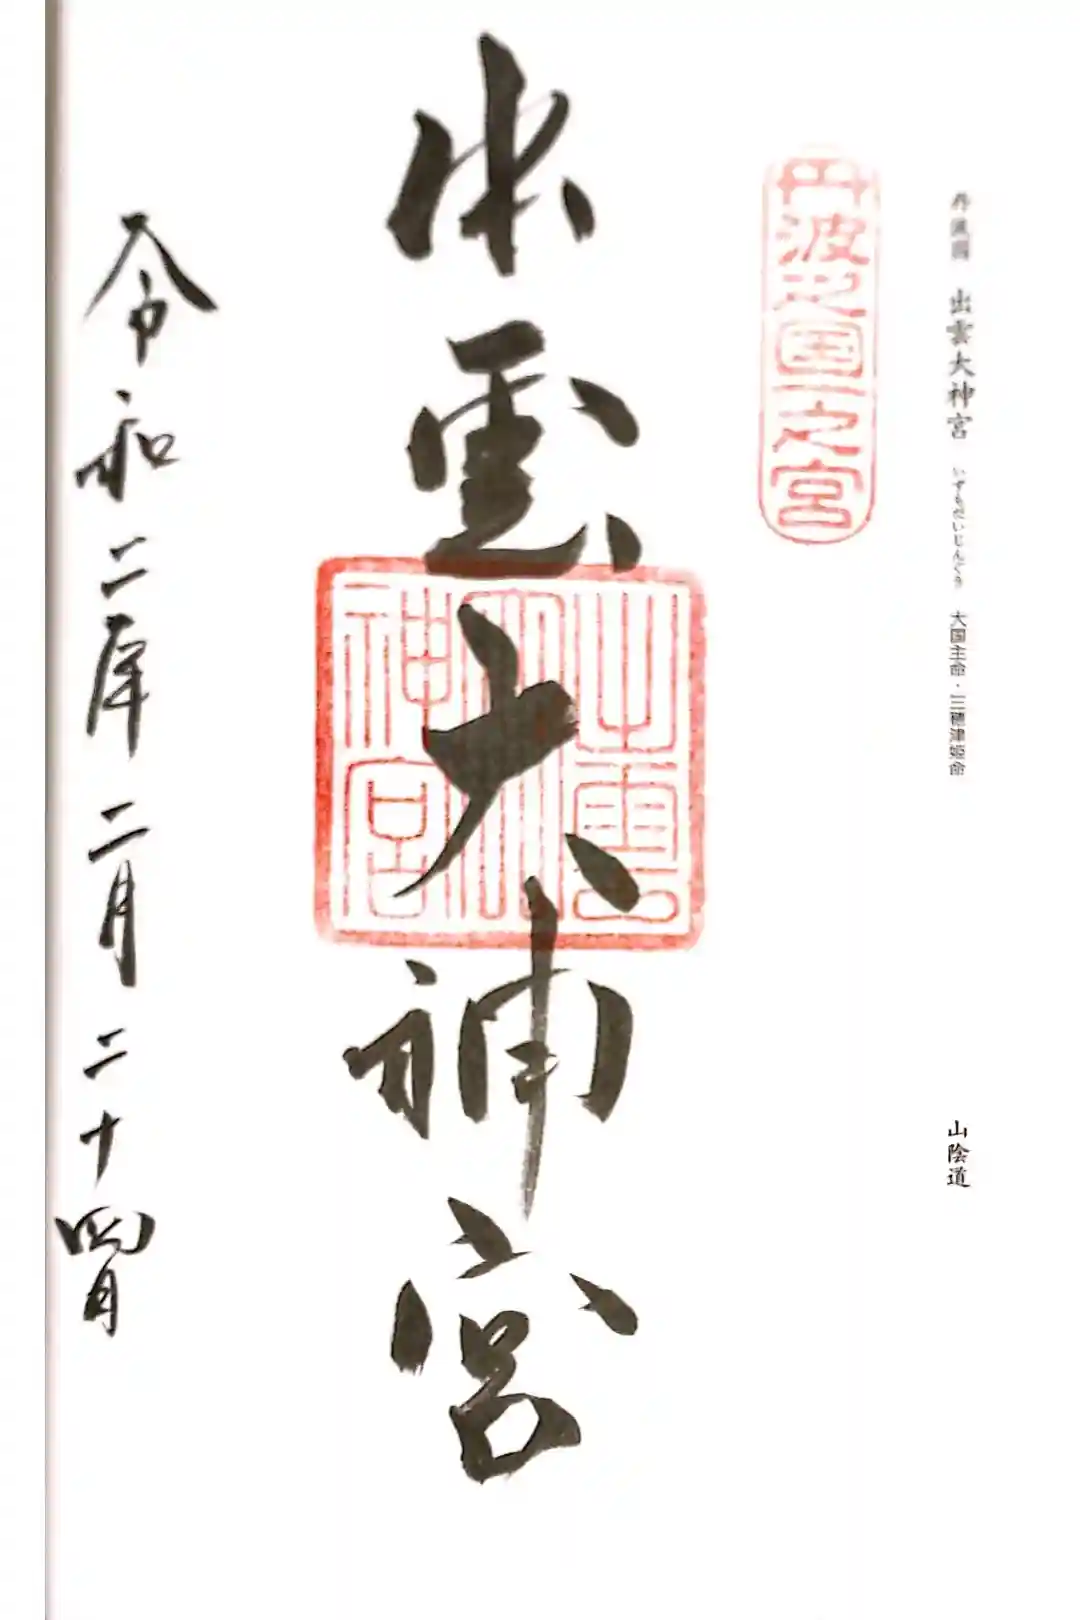 丹波國 出雲大神宮 いずもだいじんぐう 大国主命・三穂津姫命
山陰道
丹波之国一之宮
出雲大神宮
出雲大神宮
令和二年二月二十四日